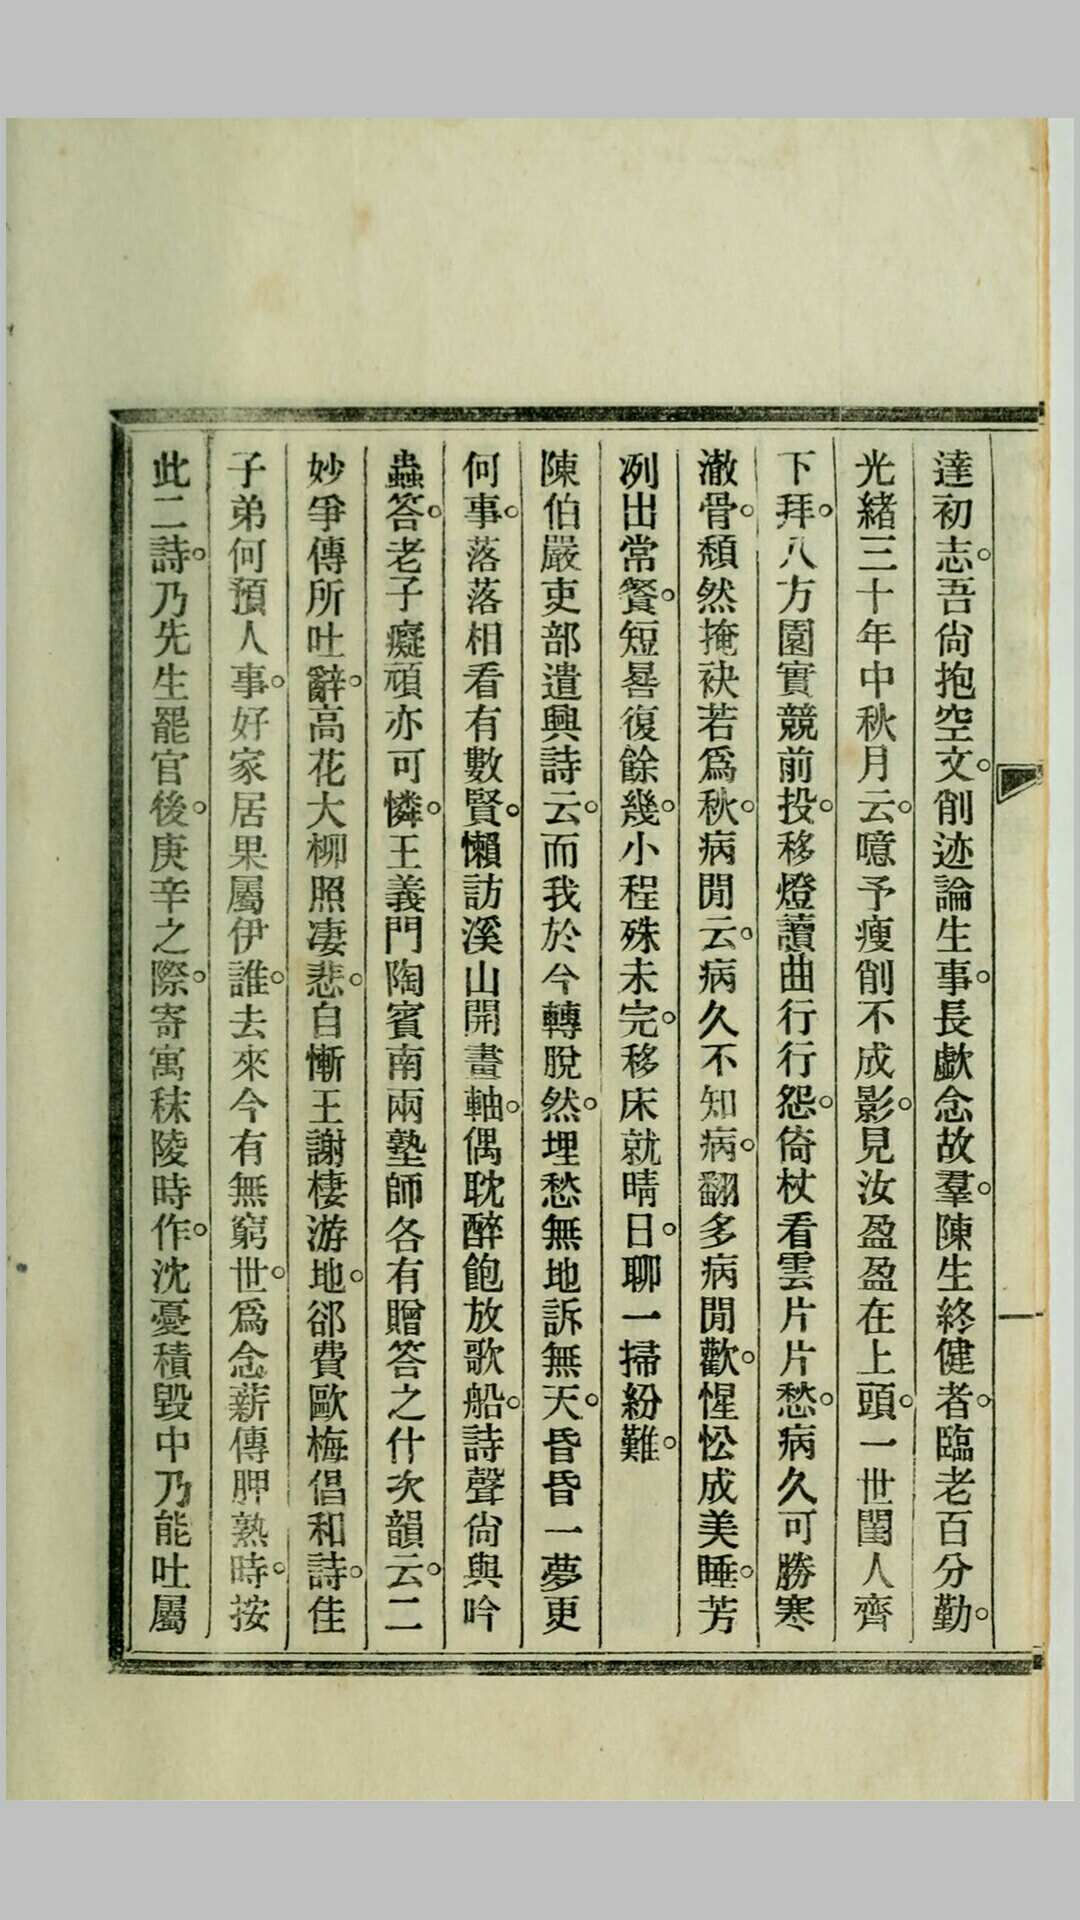 達初志。吾尙抱空文。削迹論生事。長歔念故羣。陳生終健者。臨老百分勤。
光緒三十年中秋月云。噫予瘦削不成影。見汝盈盈在上頭。一世閨人齊
下拜。八方園實競前投。移燈讀曲行行怨。倚杖看雲片片愁。病久可勝寒
澈骨。頹然掩袂若爲秋。病閒云。病久不知病。翻多病閒歡。惺忪成美睡。芳
冽出常餐。短晷復餘幾。小程殊未完。移床就晴日。聊一掃紛難。
陳伯嚴吏部遣興詩云。而我於今轉脫然。埋愁無地訴無天。昏昏一夢更
何事。落落相看有數賢。懶訪溪山開畫軸。偶耽醉飽放歌船。詩聲尙與吟
蟲答。老子癡頑亦可憐。王義門陶賓南兩塾師各有贈答之什次韻云。二
妙爭傳所吐辭。高花大柳照凄悲。自慚王謝棲游地。郤費歐梅倡和詩。佳
子弟何預人事。好家居果屬伊誰。去來今有無窮世。爲念薪傳胛熟時。按
此二詩。乃先生罷官後。庚辛之際。寄寓秣陵時作。沈憂積毀中乃能吐屬
一